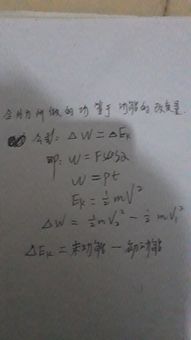 合外力所做的功等于动能的改变量.
公式: ΔW=ΔEk
即: W=Fscosα
W=Pt
Ek=½mV²
ΔW=½mV₂²-½mV₁²
ΔEk=末动能-初动能